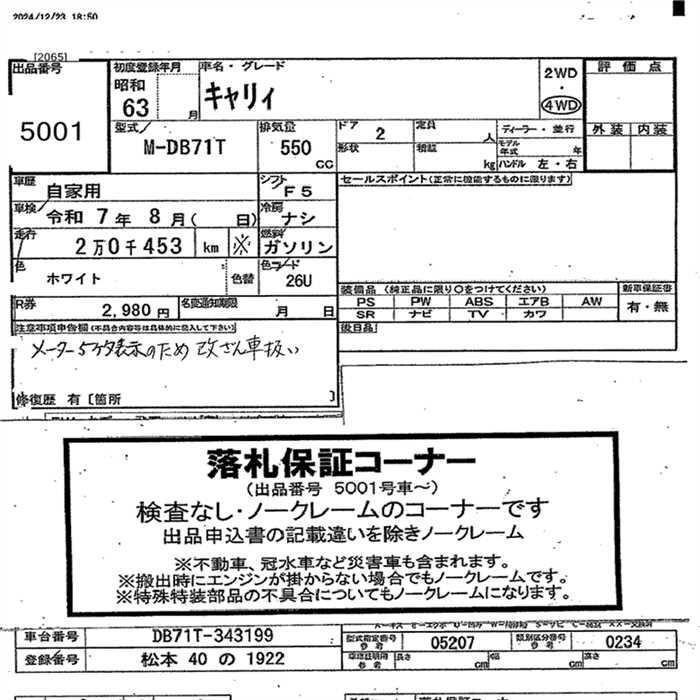 2024/12/23 18:50
[2065]
出品番号
5001
初度登録年月
昭和
63
月
車名・グレード
キャリィ
2WD
・
4WD
評価点
外装 内装
型式
M-DB71T
排気量
550
CC
ドア
2
定員
人
形状
積載
kg
ディーラー・並行
モデル年式
年
ハンドル 左・右
車歴
自家用
シフト
F5
セールスポイント(正常に機能するものに限ります)
車検
令和 7年 8月( 日)
冷房
ナシ
走行
2万0千453 km ※
燃料
ガソリン
色
ホワイト
色替
色コード
26U
装備品(純正品に限り〇をつけてください)
PS PW ABS エアB AW
SR ナビ TV カワ
新車保証書
有・無
R券
2,980円
名変通知期限
月 日
後日品
注意事項申告欄(不具合内容等は具体的に記入して下さい)
メーター5ケタ表示のため 改ざん車扱い
修復歴 有[箇所 ]
落札保証コーナー
(出品番号 5001号車〜)
検査なし・ノークレームのコーナーです
出品申込書の記載違いを除きノークレーム
※不動車、冠水車など災害車も含まれます。
※搬出時にエンジンが掛からない場合でもノークレームです。
※特殊特装部品の不具合についてもノークレームになります。
車台番号
DB71T-343199
型式指定番号
参考
05207
類別区分番号
参考
0234
登録番号
松本 40 の 1922
車庫証明用
参考
長さ
cm
幅
cm
高さ
cm
落札保証コーナー